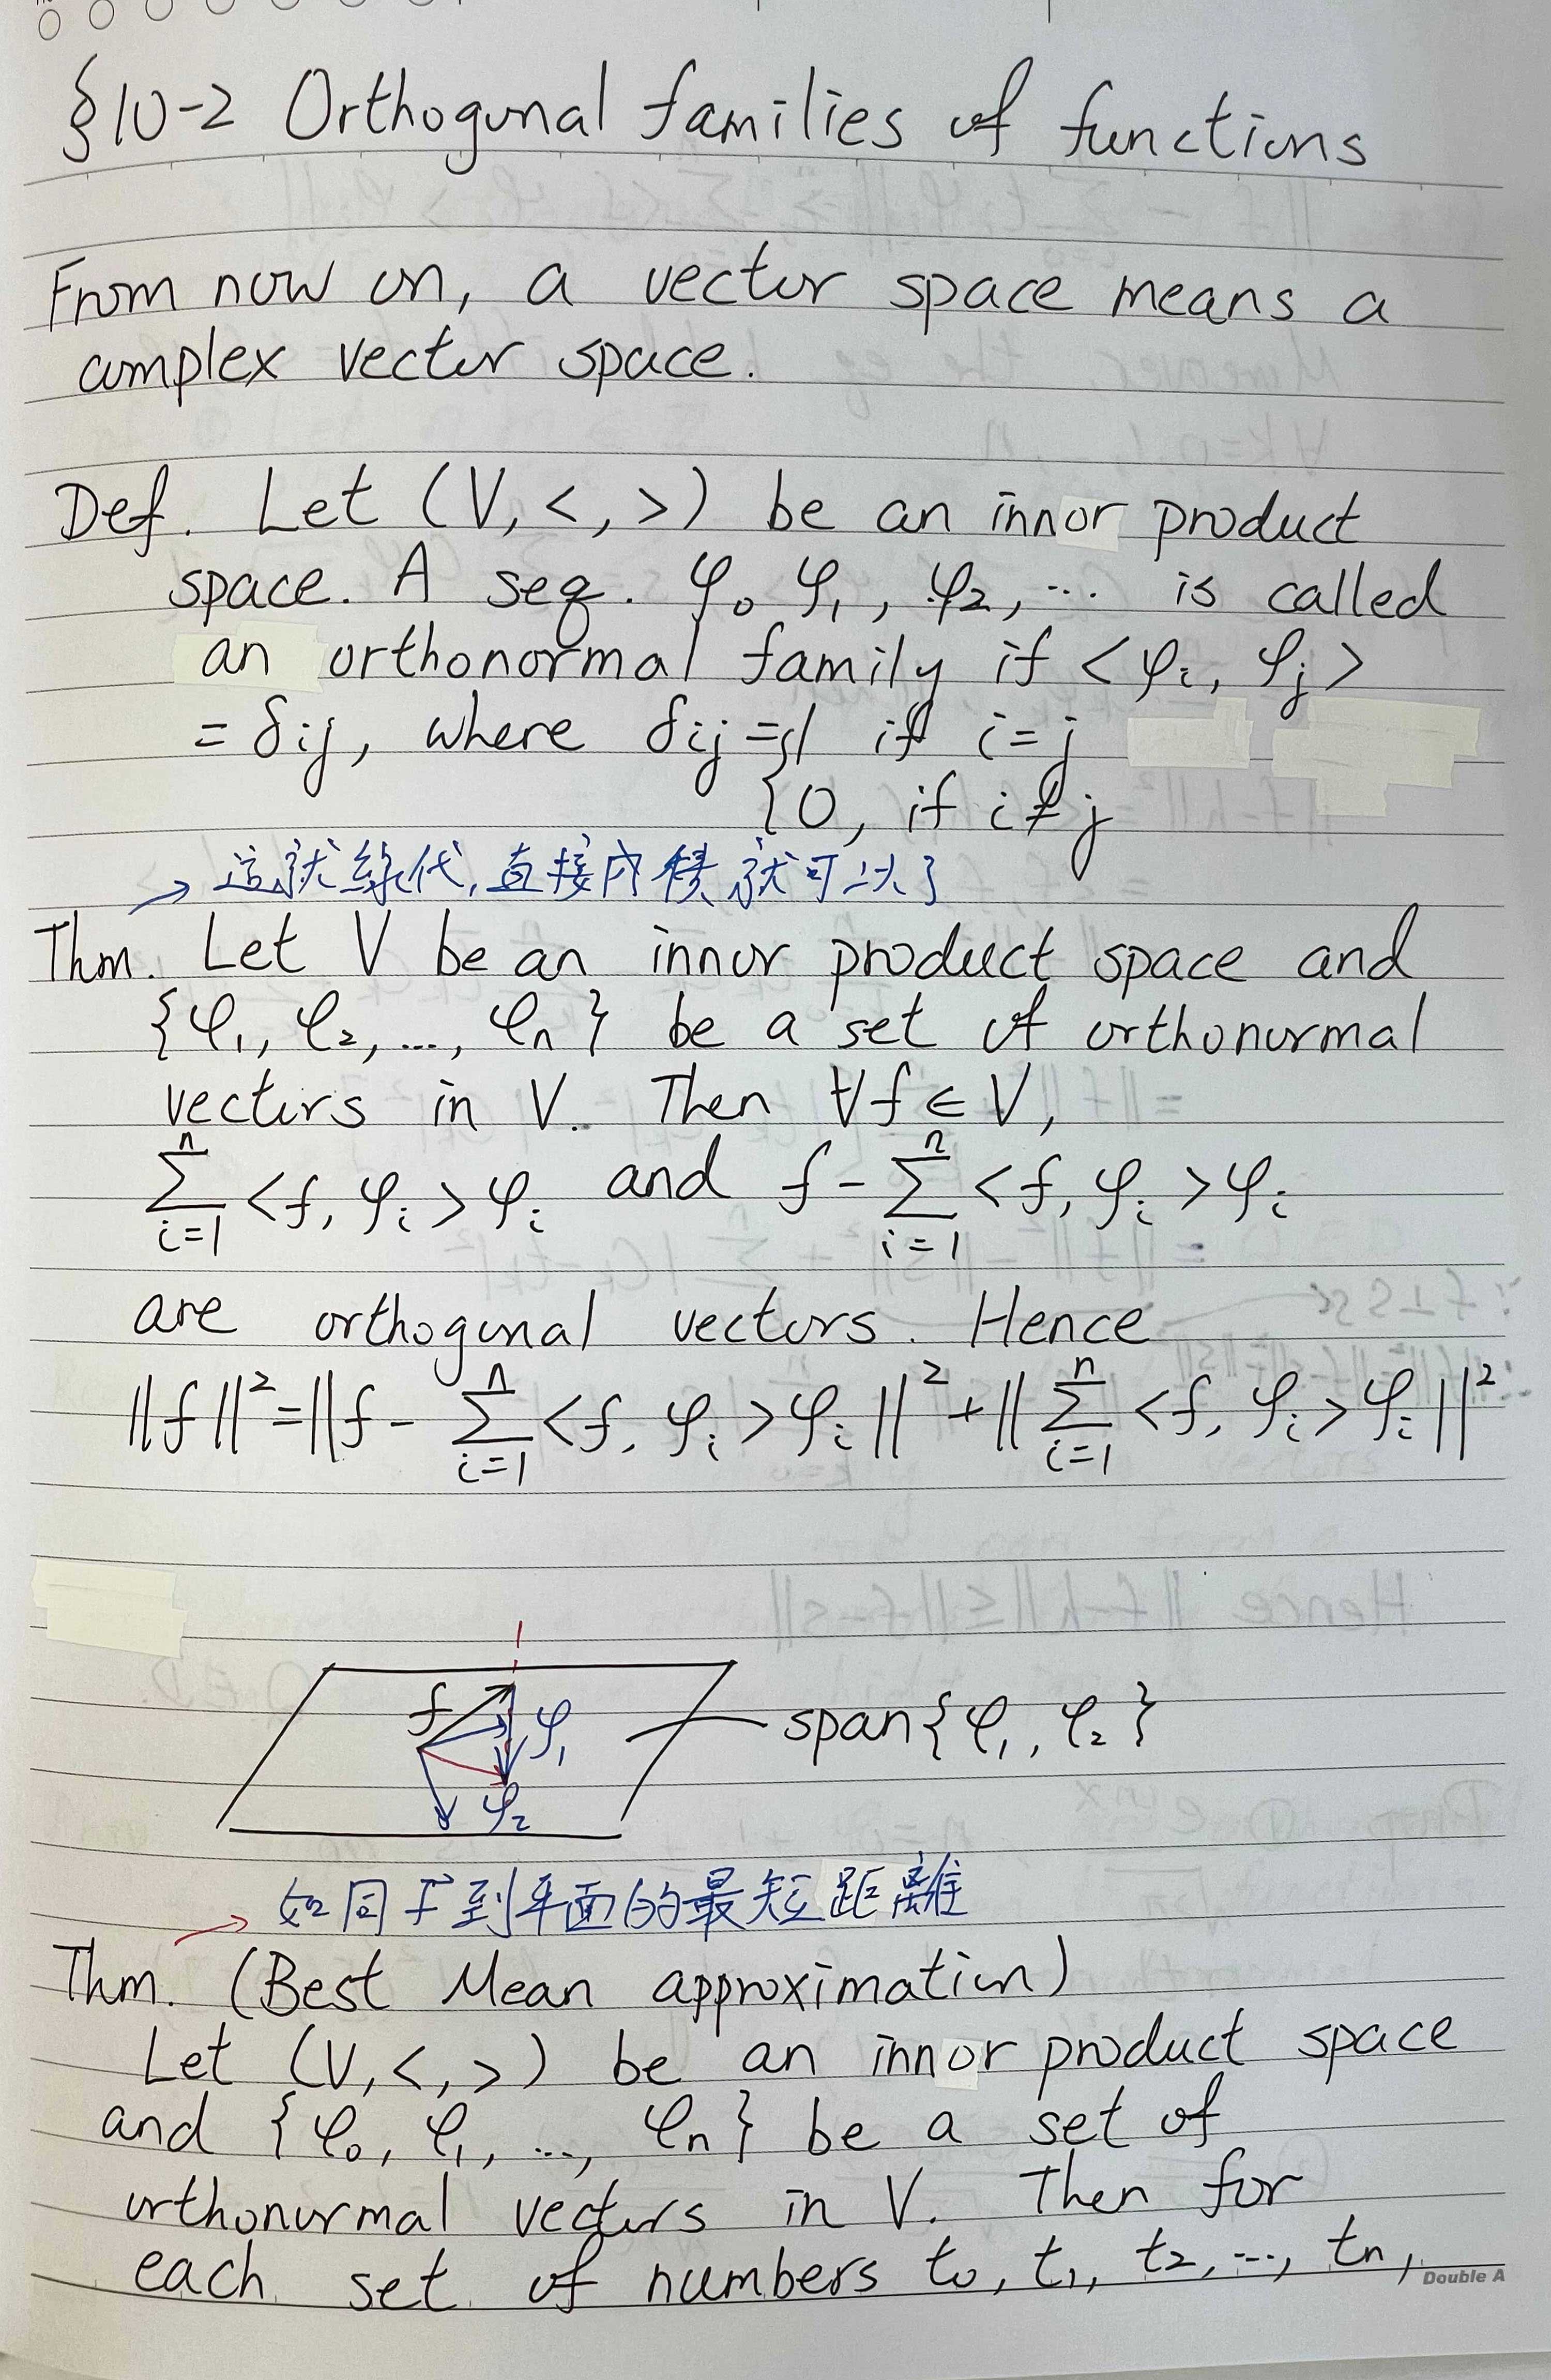 §10-2 Orthogonal families of functions
From now on, a vector space means a
complex vector space.
Def. Let (V, <, >) be an innor product
space. A seq. φ₀ φ₁, φ₂, ... is called
an orthonormal family if <φᵢ, φⱼ>
= δij, where δij = {1 if i=j
{0, if i≠j
→ 這就線代, 直接內積就可以了
Thm. Let V be an innor product space and
{φ₁, φ₂, ..., φn} be a set of orthonormal
vectors in V. Then ∀f ∈ V,
∑ᵢ₌₁ⁿ <f, φᵢ>φᵢ and f - ∑ᵢ₌₁ⁿ <f, φᵢ>φᵢ
are orthogonal vectors. Hence
||f||² = ||f - ∑ᵢ₌₁ⁿ <f, φᵢ>φᵢ||² + ||∑ᵢ₌₁ⁿ <f, φᵢ>φᵢ||²
f
φ₁
span{φ₁, φ₂}
φ₂
→ 如同 f 到平面的最短距離
Thm. (Best Mean approximation)
Let (V, <, >) be an innor product space
and {φ₀, φ₁, ..., φn} be a set of
orthonormal vectors in V. Then for
each set of numbers t₀, t₁, t₂, ..., tn,
Double A